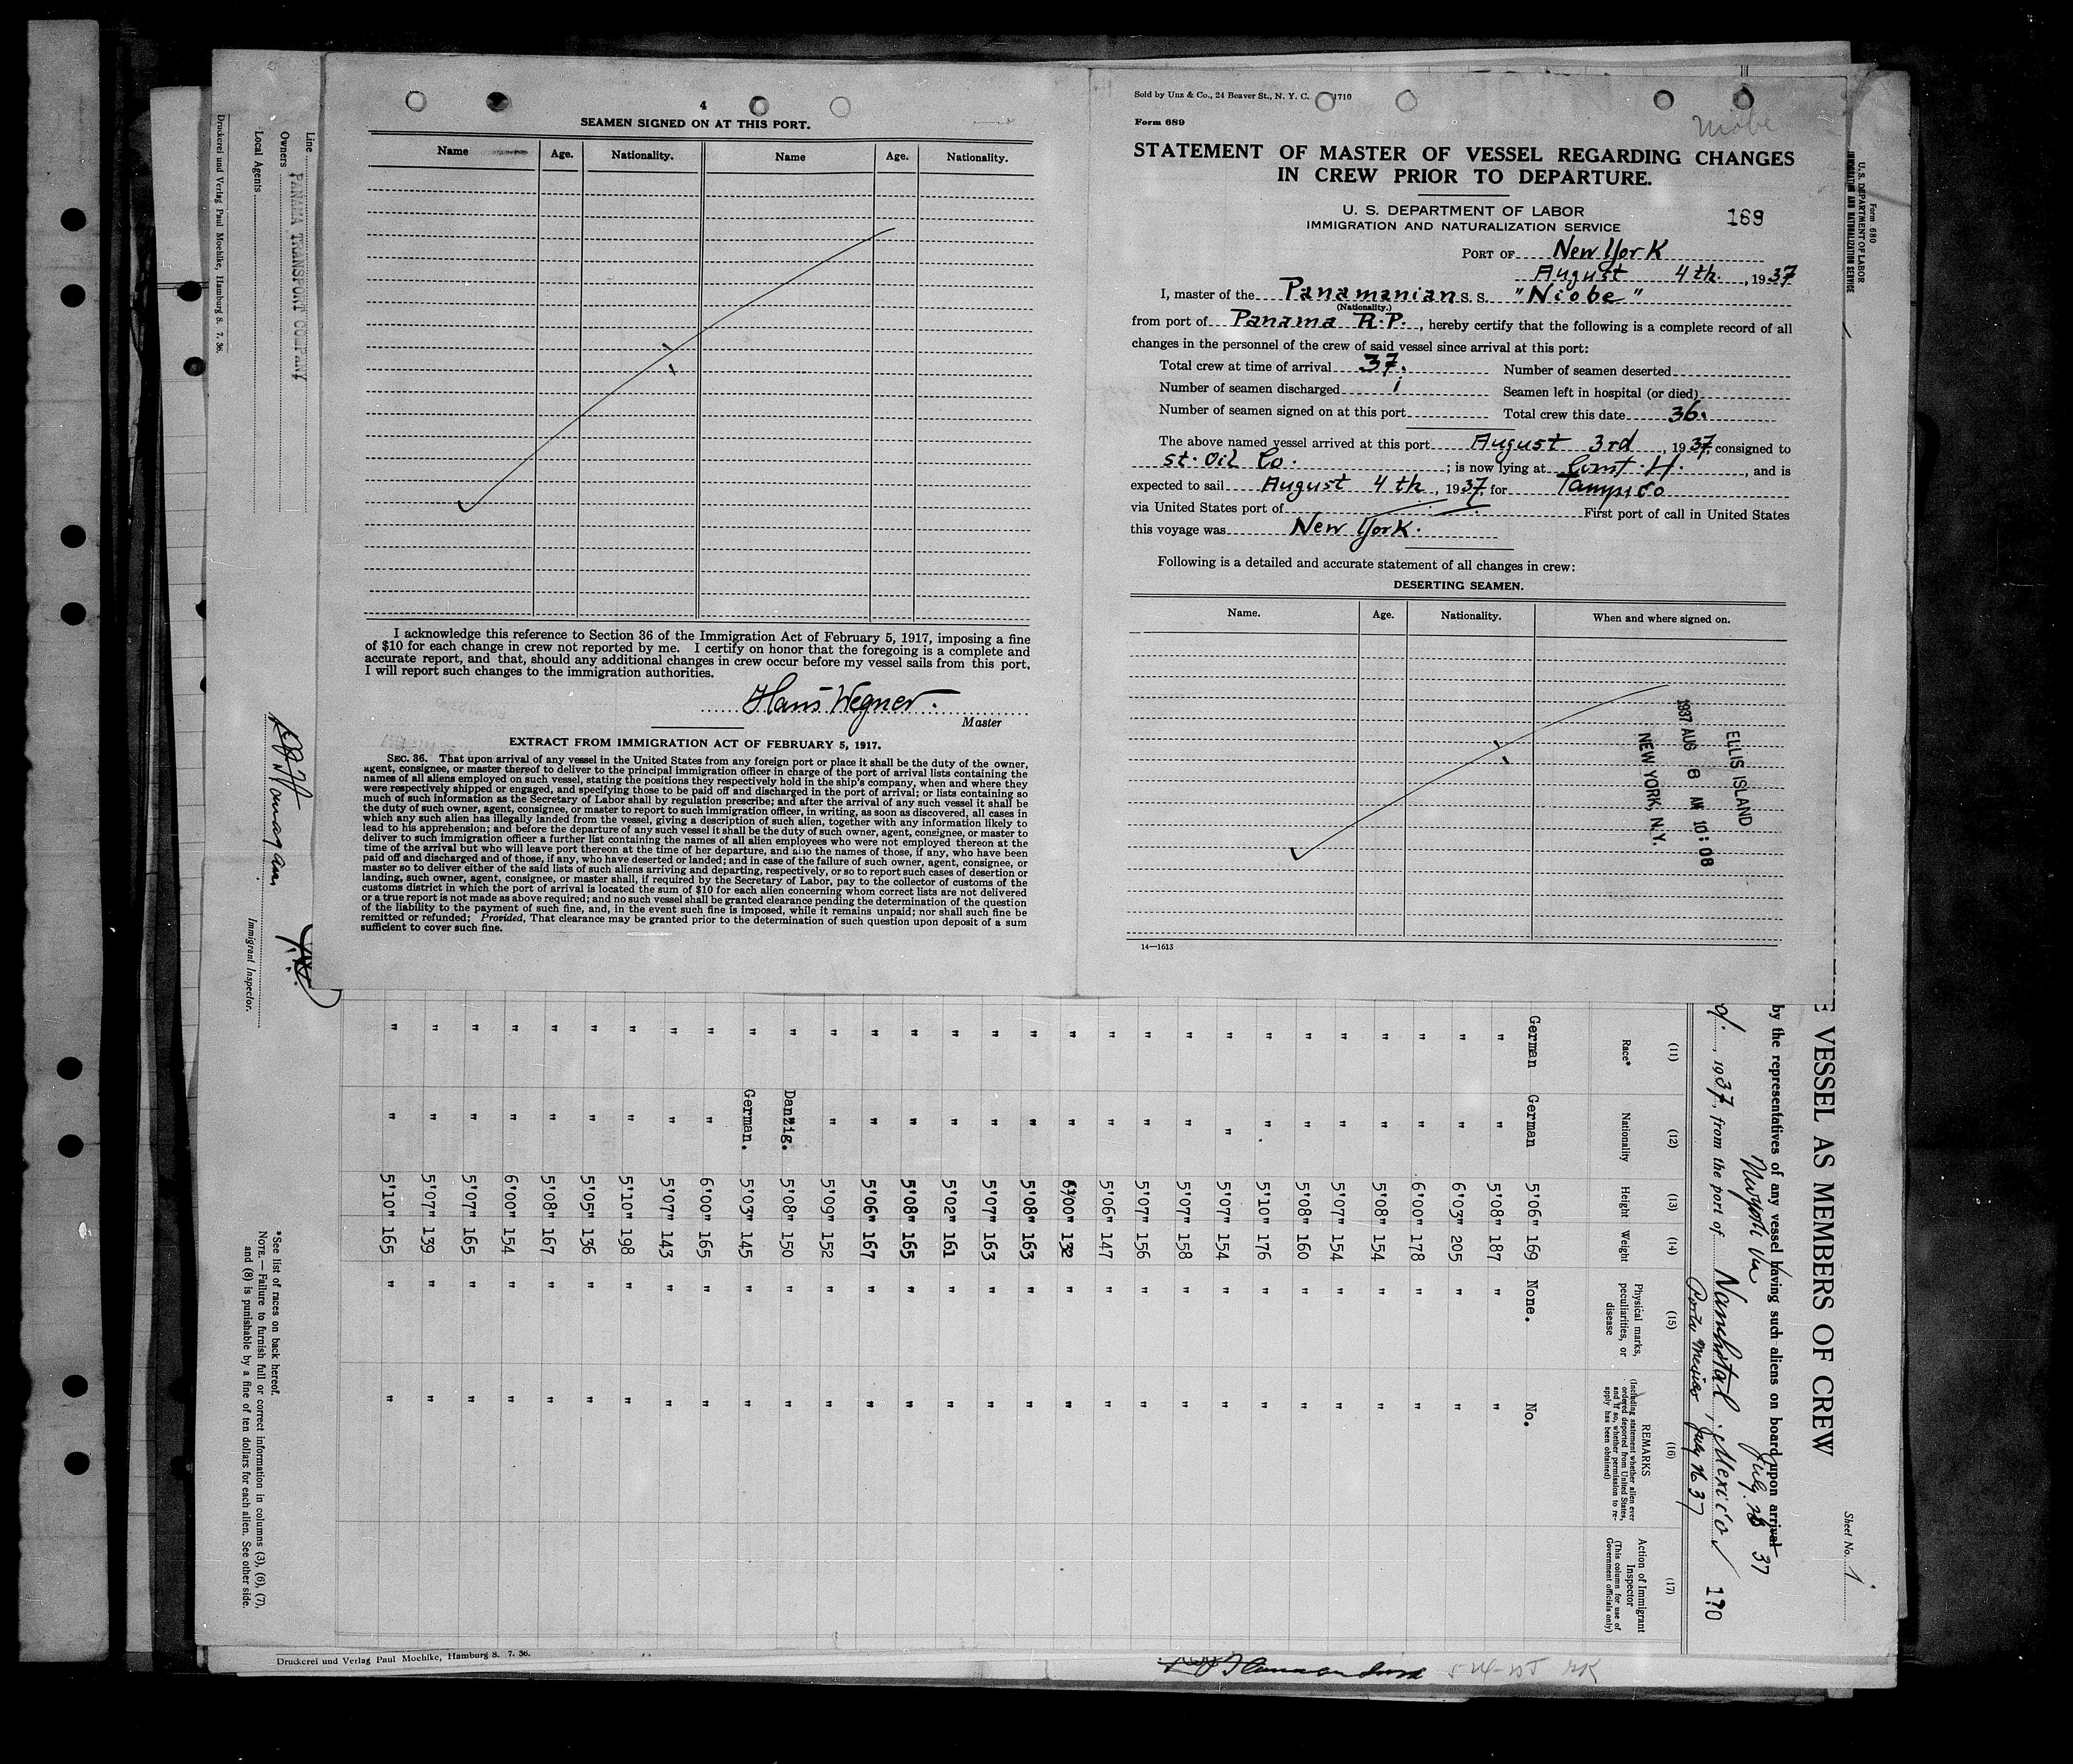 4
SEAMEN SIGNED ON AT THIS PORT.
Name Age. Nationality. Name Age. Nationality.
I acknowledge this reference to Section 36 of the Immigration Act of February 5, 1917, imposing a fine
of $10 for each change in crew not reported by me. I certify on honor that the foregoing is a complete and
accurate report, and that, should any additional changes in crew occur before my vessel sails from this port,
I will report such changes to the immigration authorities.
Hans Wegner.
Master
EXTRACT FROM IMMIGRATION ACT OF FEBRUARY 5, 1917.
SEC. 36. That upon arrival of any vessel in the United States from any foreign port or place it shall be the duty of the owner,
agent, consignee, or master thereof to deliver to the principal immigration officer in charge of the port of arrival lists containing the
names of all aliens employed on such vessel, stating the positions they respectively hold in the ship's company, when and where they
were respectively shipped or engaged, and specifying those to be paid off and discharged in the port of arrival; or lists containing so
much of such information as the Secretary of Labor shall by regulation prescribe; and after the arrival of any such vessel it shall be
the duty of such owner, agent, consignee, or master to report to such immigration officer, in writing, as soon as discovered, all cases in
which any such alien has illegally landed from the vessel, giving a description of such alien, together with any information likely to
lead to his apprehension; and before the departure of any such vessel it shall be the duty of such owner, agent, consignee, or master to
deliver to such immigration officer a further list containing the names of all alien employees who were not employed thereon at the
time of the arrival but who will leave port thereon at the time of her departure, and also the names of those, if any, who have been
paid off and discharged and of those, if any, who have deserted or landed; and in case of the failure of such owner, agent, consignee, or
master so to deliver either of the said lists of such aliens arriving and departing, respectively, or so to report such cases of desertion or
landing, such owner, agent, consignee, or master shall, if required by the Secretary of Labor, pay to the collector of customs of the
customs district in which the port of arrival is located the sum of $10 for each alien concerning whom correct lists are not delivered
or a true report is not made as above required; and no such vessel shall be granted clearance pending the determination of the question
of the liability to the payment of such fine, and, in the event such fine is imposed, while it remains unpaid; nor shall such fine be
remitted or refunded; Provided, That clearance may be granted prior to the determination of such question upon deposit of a sum
sufficient to cover such fine.
Sold by Unz & Co., 24 Beaver St., N. Y. C. 1710
Form 689
STATEMENT OF MASTER OF VESSEL REGARDING CHANGES
IN CREW PRIOR TO DEPARTURE.
U. S. DEPARTMENT OF LABOR
IMMIGRATION AND NATURALIZATION SERVICE
169
PORT OF New York
August 4th., 1937
I, master of the Panamanian S. S. "Niobe"
(Nationality.)
from port of Panama R.P., hereby certify that the following is a complete record of all
changes in the personnel of the crew of said vessel since arrival at this port:
Total crew at time of arrival 37. Number of seamen deserted
Number of seamen discharged 1 Seamen left in hospital (or died)
Number of seamen signed on at this port Total crew this date 36.
The above named vessel arrived at this port August 3rd, 1937, consigned to
St. Oil Co. ; is now lying at Const. H., and is
expected to sail August 4th, 1937, for Tampico
via United States port of First port of call in United States
this voyage was New York.
Following is a detailed and accurate statement of all changes in crew:
DESERTING SEAMEN.
Name. Age. Nationality. When and where signed on.
ELLIS ISLAND
1937 AUG 6 AM 10:08
NEW YORK, N.Y.
14—1613
Form 680
U. S. DEPARTMENT OF LABOR
IMMIGRATION AND NATURALIZATION SERVICE
Sheet No. 1
E VESSEL AS MEMBERS OF CREW
by the representatives of any vessel having such aliens on board upon arrival
Newyork via July 28 37
, 1937, from the port of Nanchital, Mexico 170
Porto Mexico July 26 37
(11) (12) (13) (14) (15) (16) (17)
Race* Nationality Height Weight Physical marks, peculiarities, or disease
REMARKS
(Including statement whether alien ever ordered deported from United States, and if so, whether permission to reapply has been obtained)
Action of Immigrant Inspector
(This column for use of Government officials only)
German German 5'06" 169 None. No.
" " 5'08" 187 " "
" " 6'03" 205 " "
" " 6'00" 178 " "
" " 5'08" 154 " "
" " 5'07" 154 " "
" " 5'08" 160 " "
" " 5'10" 176 " "
" " 5'07" 154 " "
" " 5'07" 158 " "
" " 5'07" 156 " "
" " 5'06" 147 " "
" " 6'00" 132 " "
" " 5'08" 163 " "
" " 5'07" 163 " "
" " 5'02" 161 " "
" " 5'08" 165 " "
" " 5'06" 167 " "
" " 5'09" 152 " "
" Danzig. 5'08" 150 " "
" German. 5'03" 145 " "
" " 6'00" 165 " "
" " 5'07" 143 " "
" " 5'10" 198 " "
" " 5'05" 136 " "
" " 5'08" 167 " "
" " 6'00" 154 " "
" " 5'07" 165 " "
" " 5'07" 139 " "
" " 5'10" 165 " "
*See list of races on back hereof.
NOTE.—Failure to furnish full or correct information in columns (3), (6), (7),
and (8) is punishable by a fine of ten dollars for each alien. See other side.
Line
Owners PANAMA TRANSPORT COMPANY
Local Agents
Immigrant Inspector.
Druckerei und Verlag Paul Moehlke, Hamburg 8. 7. 36.
Druckerei und Verlag Paul Moehlke, Hamburg 8. 7. 36.